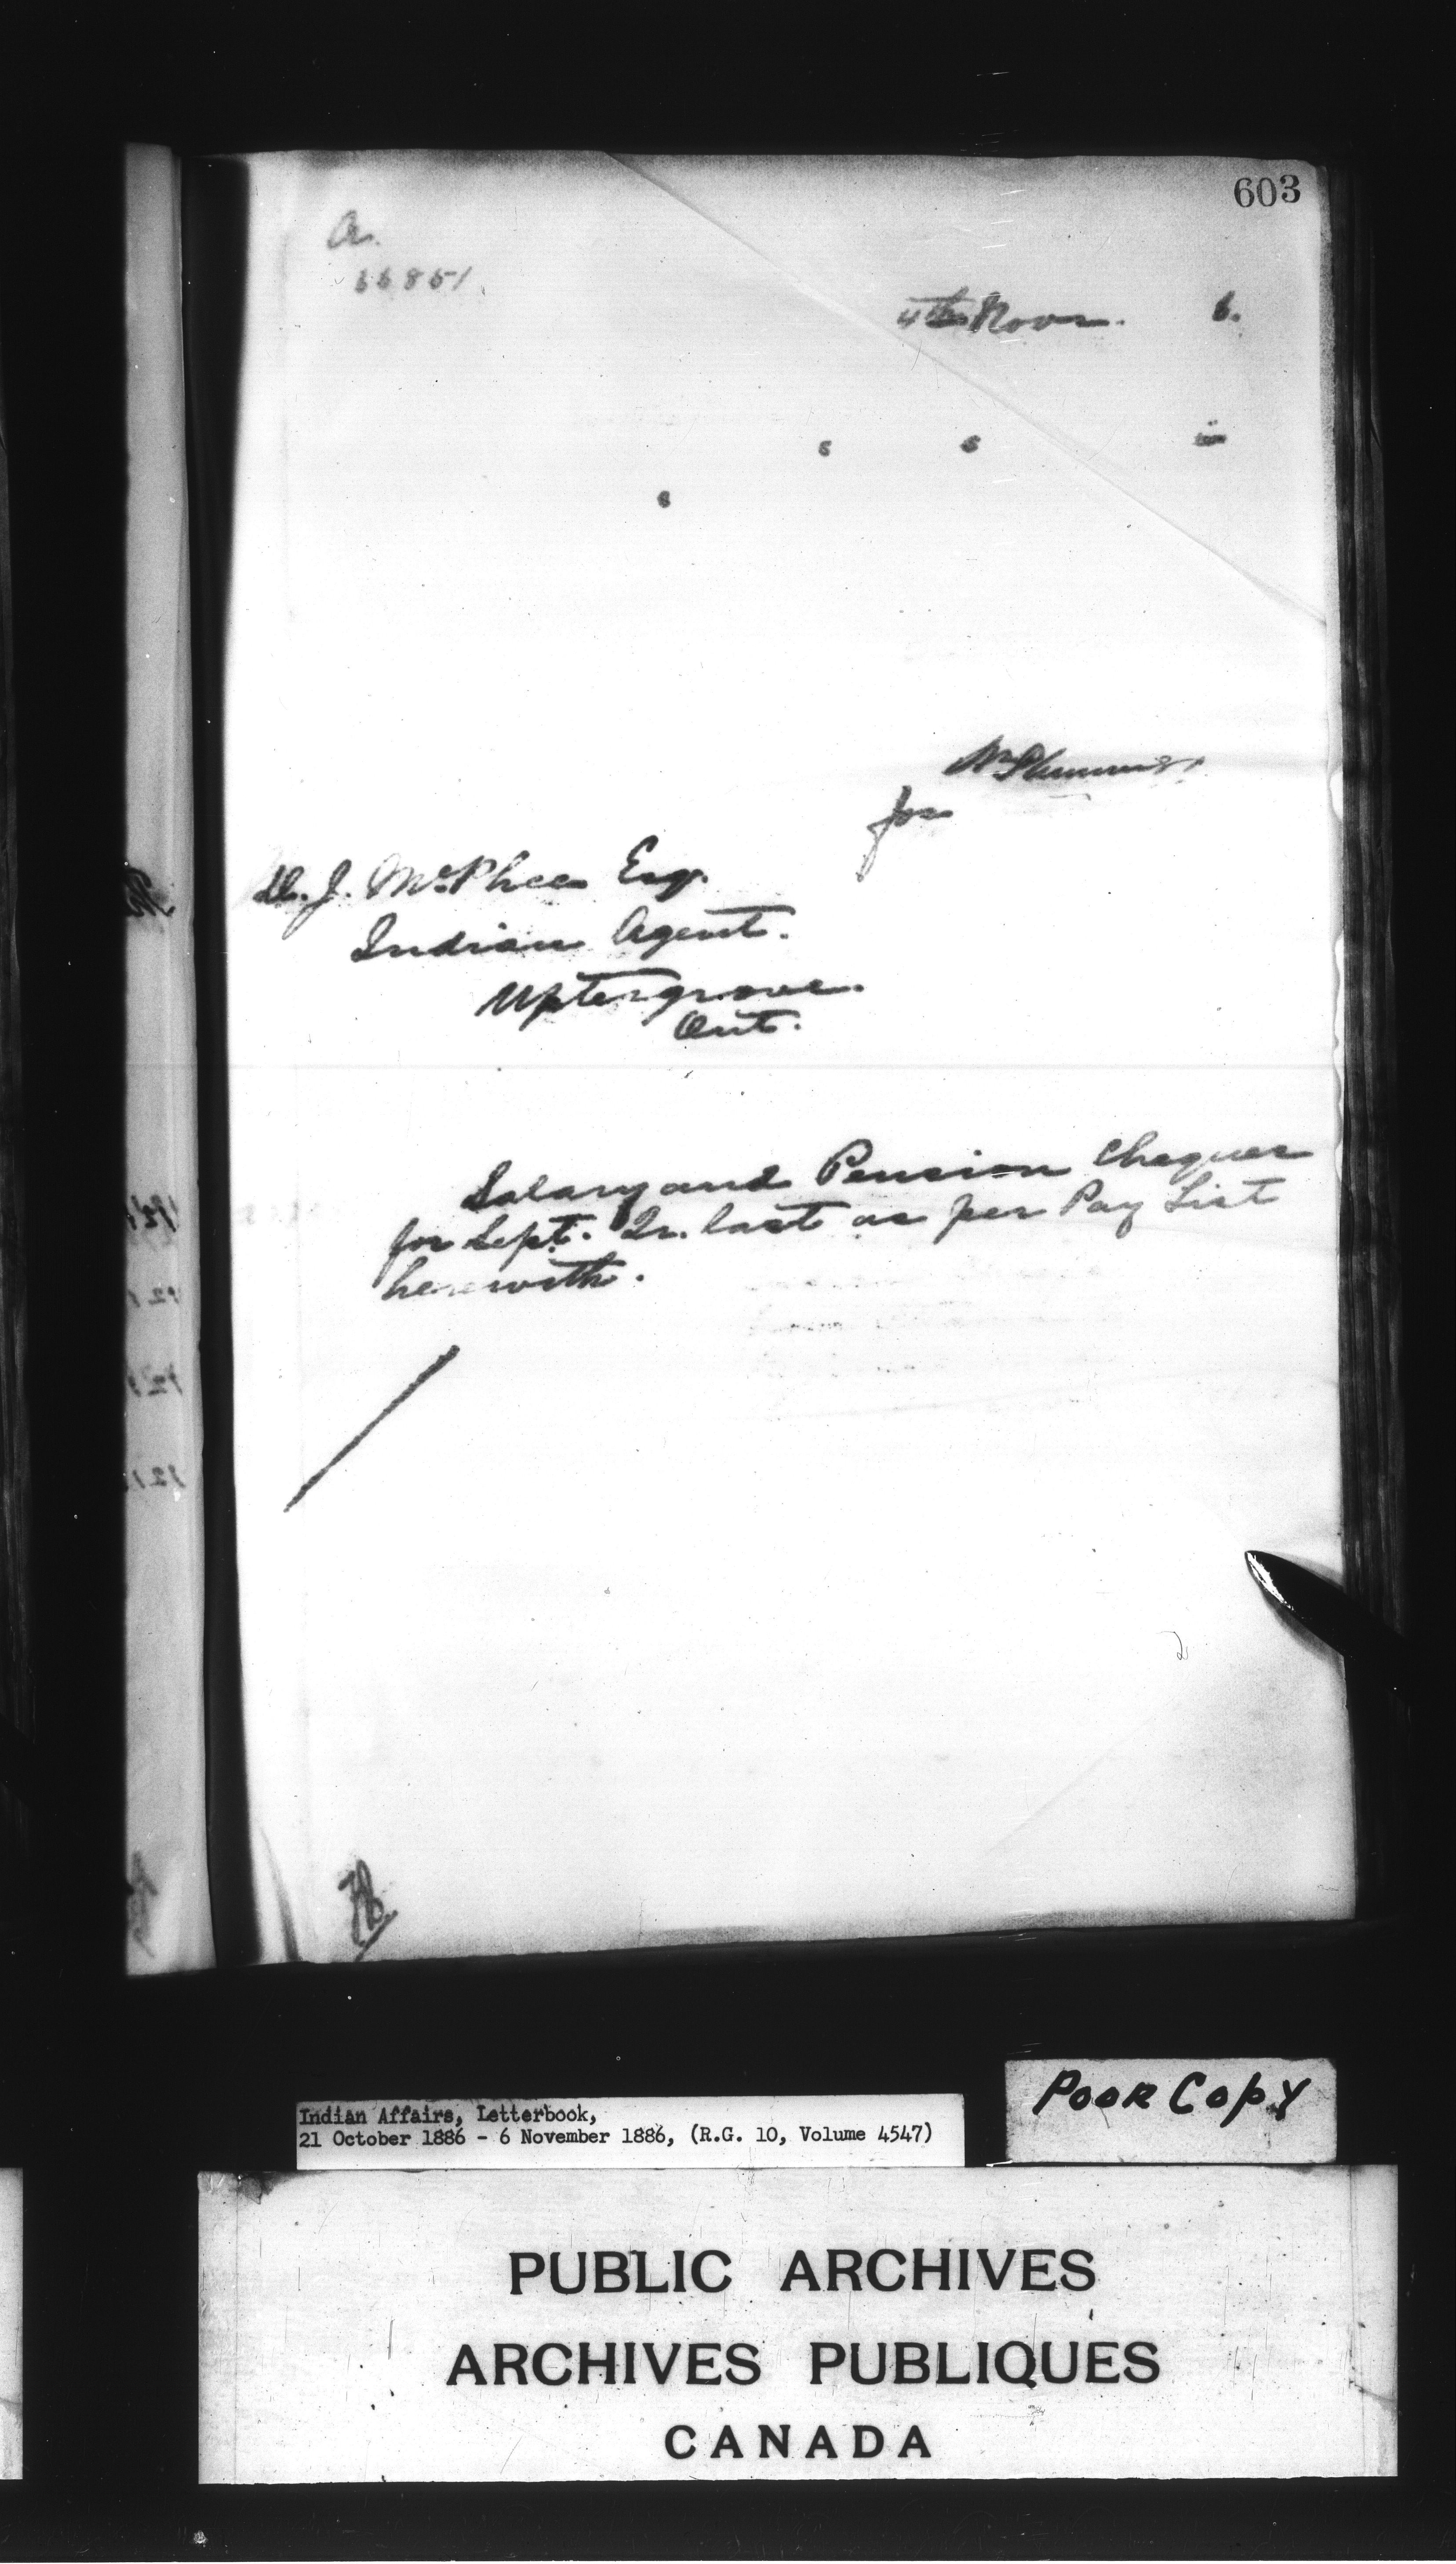 603
A.
66851
4th Novr. 6.
s s
s
Wm Plummer
for
D. J. McPhee Esq.
Indian Agent.
Uptergrove.
Ont.
Salary and Pension Cheques
for Sept. Qr. last as per Pay List
herewith.
Poor Copy
Indian Affairs, Letterbook,
21 October 1886 - 6 November 1886, (R.G. 10, Volume 4547)
PUBLIC ARCHIVES
ARCHIVES PUBLIQUES
CANADA